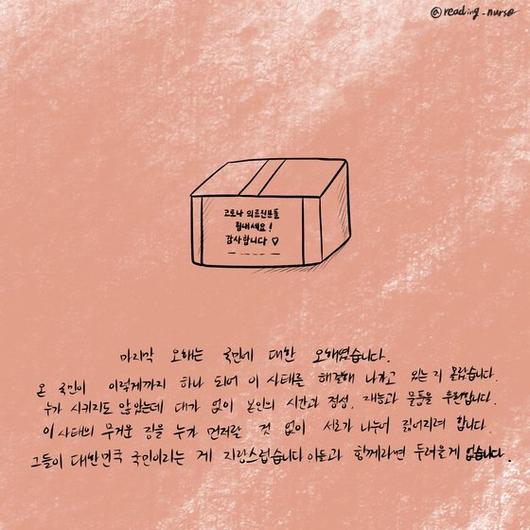 @reading_nurse
코로나 의료진분들
힘내세요!
감사합니다 ♡
마지막 오해는 국민에 대한 오해였습니다.
온 국민이 이렇게까지 하나 되어 이 사태를 해결해 나가고 있는지 몰랐습니다.
누가 시키지도 않았는데 대가 없이 본인의 시간과 정성, 재능과 물품을 후원합니다.
이 사태의 무거운 짐을 누가 먼저랄 것 없이 서로가 나누어 짊어지려 합니다.
그들이 대한민국 국민이라는 게 자랑스럽습니다 이들과 함께라면 두려울게 없습니다.